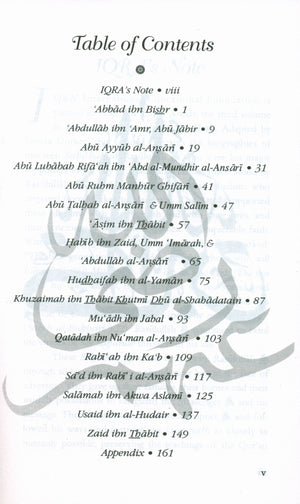 Table of Contents
IQRA's Note • viii
'Abbād ibn Bishr • 1
'Abdullāh ibn 'Amr, Abū Jābir • 9
Abū Ayyūb al-Anṣārī • 19
Abū Lubābah Rifā'ah ibn 'Abd al-Mundhir al-Anṣārī • 31
Abū Ruhm Manhūr Ghifārī • 41
Abū Ṭalḥah al-Anṣārī & Umm Salīm • 47
'Āṣim ibn Thābit • 57
Ḥabīb ibn Zaid, Umm 'Imārah, &
'Abdullāh al-Anṣārī • 65
Hudhaifah ibn al-Yamān • 75
Khuzaimah ibn Thābit Khutmī Dhū al-Shahādatain • 87
Mu'ādh ibn Jabal • 93
Qatādah ibn Nu'man al-Anṣārī • 103
Rabī'ah ibn Ka'b • 109
Sa'd ibn Rabī'i al-Anṣārī • 117
Salāmah ibn Akwa Aslamī • 125
Usaid ibn al-Hudair • 137
Zaid ibn Thābit • 149
Appendix • 161
v